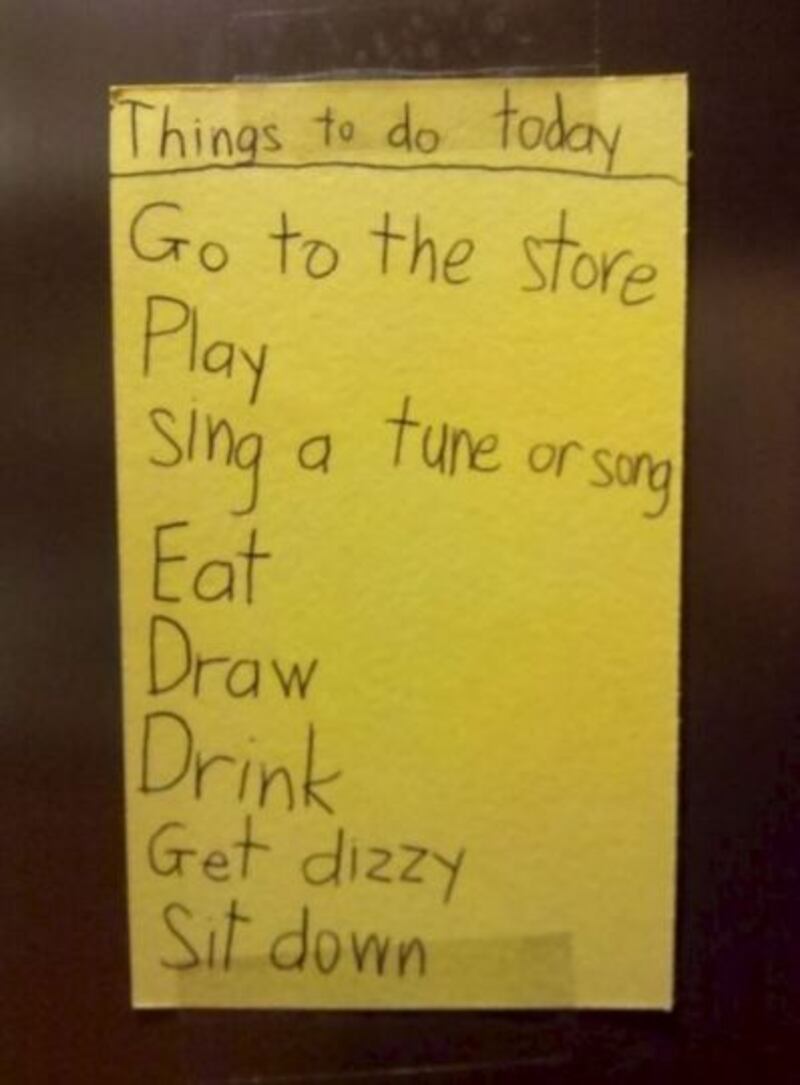 Things to do today
Go to the store
Play
sing a tune or song
Eat
Draw
Drink
Get dizzy
Sit down